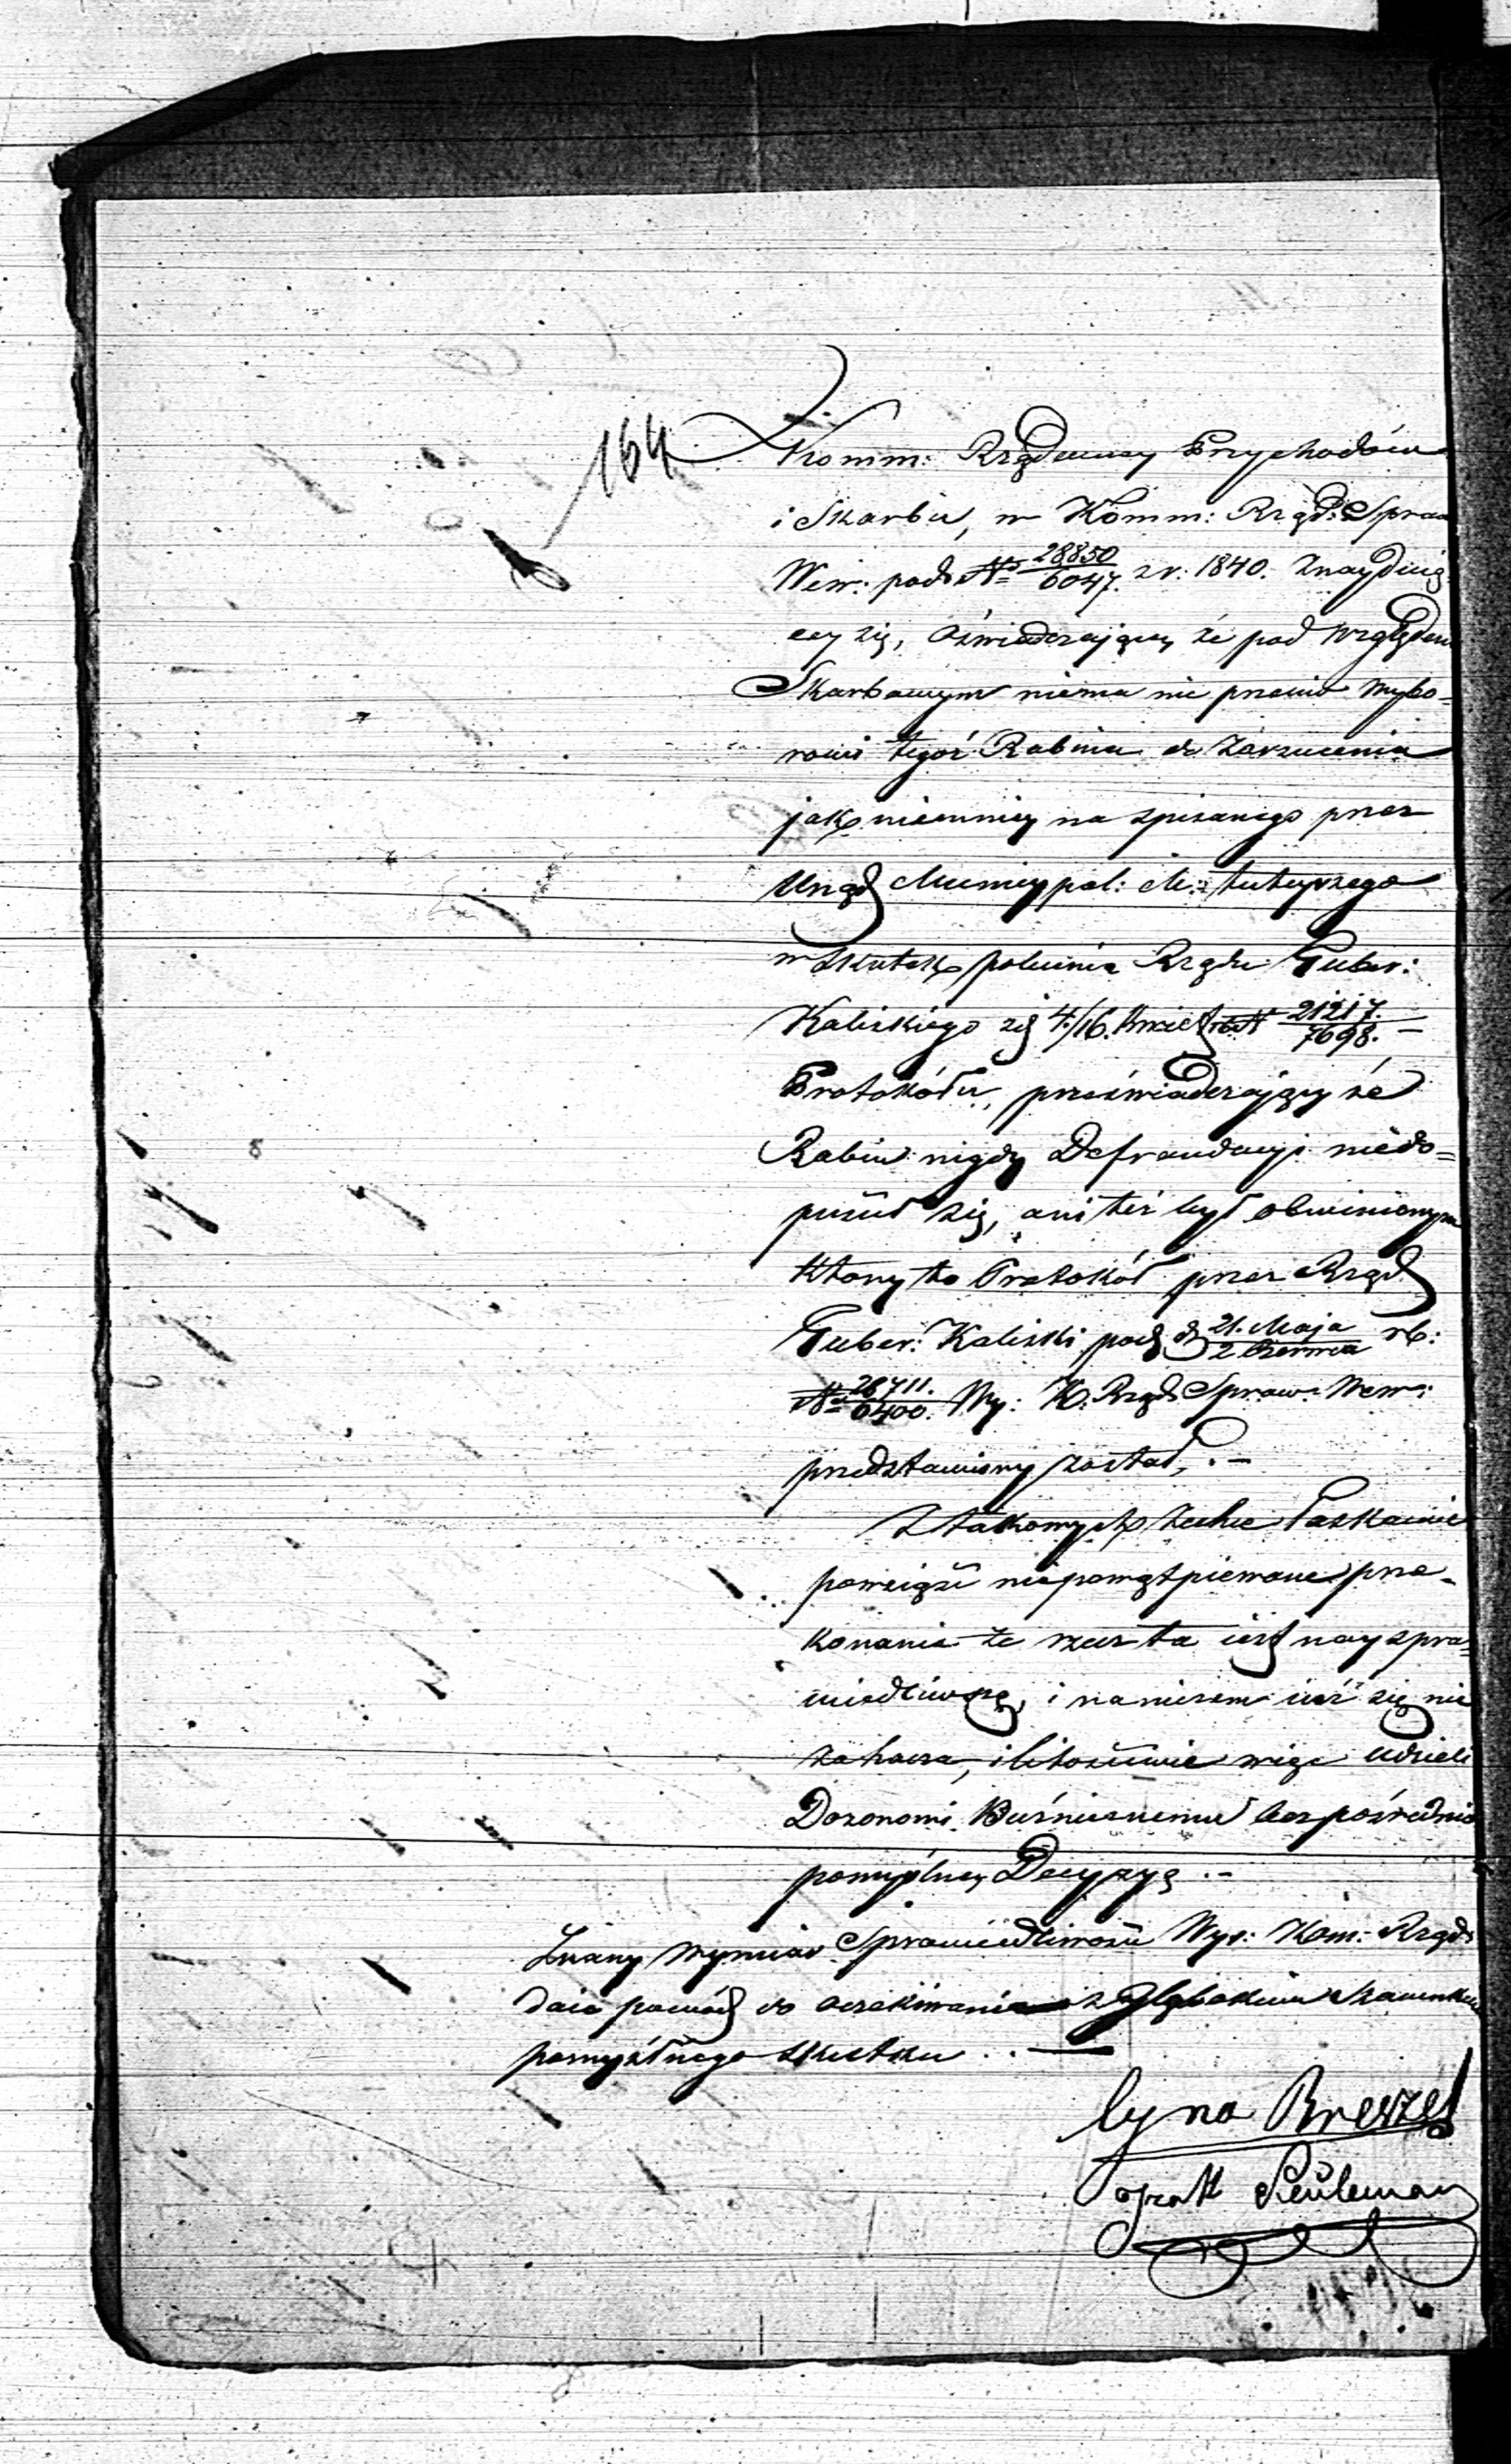 164
Komm: Rządowey Przychodów
i Skarbu, w Komm: Rząd: Spraw
Wew: pod № 28850/6047. z r: 1840. znayduią
cey się, oświadczającey że pod względem
Skarbowym niema nic przeciw wybo=
rowi tegoż Rabina do zarzucenia
jak niemniey na spisanego przez
Urząd Municypal: M: tuteyszego
w skutek polecenia Rządu Guber:
Kaliskiego z d 4./16. Kwiet rb № 21217./7698. —
Protokółu, przeświadczający że
Rabin nigdy Defraudacyi niedo=
puścił się, ani też był obwinionym
który to Protokół przez Rząd
Guber: Kaliski pod d 21. Maja/2 Czerwca rb:
№ 28711./6400. Wy: K. Rząd. Spraw: Wew:
przedstawiony został, . —
Z takowych Łaskawie
powziąść niepowątpiewane prze-
konanie że rzecz ta iest nayspra=
wiedliwszą, i na niczem iuż się nie
zahacza, i litościwie więc udzieli
Dozorowi Bóżnicznemu bezpośrednio
pomyślney Decyzyą . —
Znany wymiar Sprawiedliwości Wys: Kom: Rząd:
daie powód do oczekiwania z głębokim szacunkiem
pomyślnego skutku . . —